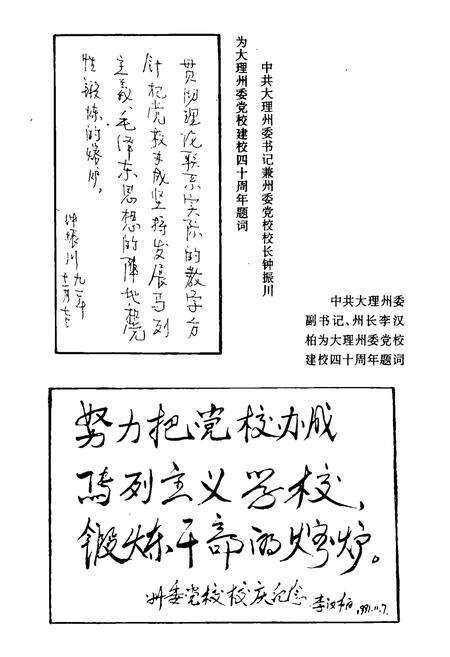 中共大理州委书记兼州委党校校长钟振川
为大理州委党校建校四十周年题词
贯彻理论联系实际的教学方
针把党校办成坚持发展马列
主义、毛泽东思想的阵地、党
性锻炼的熔炉。
钟振川 九一年
十一月七日
中共大理州委
副书记、州长李汉
柏为大理州委党校
建校四十周年题词
努力把党校办成
马列主义学校，
锻炼干部的熔炉。
州委党校校庆纪念 李汉柏 1991.11.7.